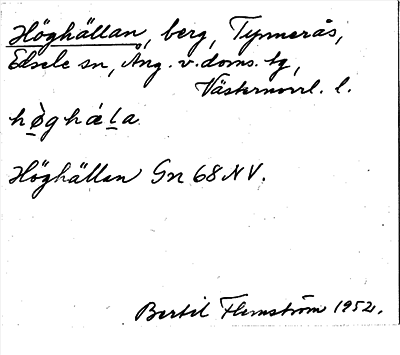 Höghällan, berg, Tymerås,
Edsele sn, Ång. v. doms. tg,
Västernorrl. l.
hø̀ghálа
Höghällan Gn 68 NV.
Bertil Flemström 1952.